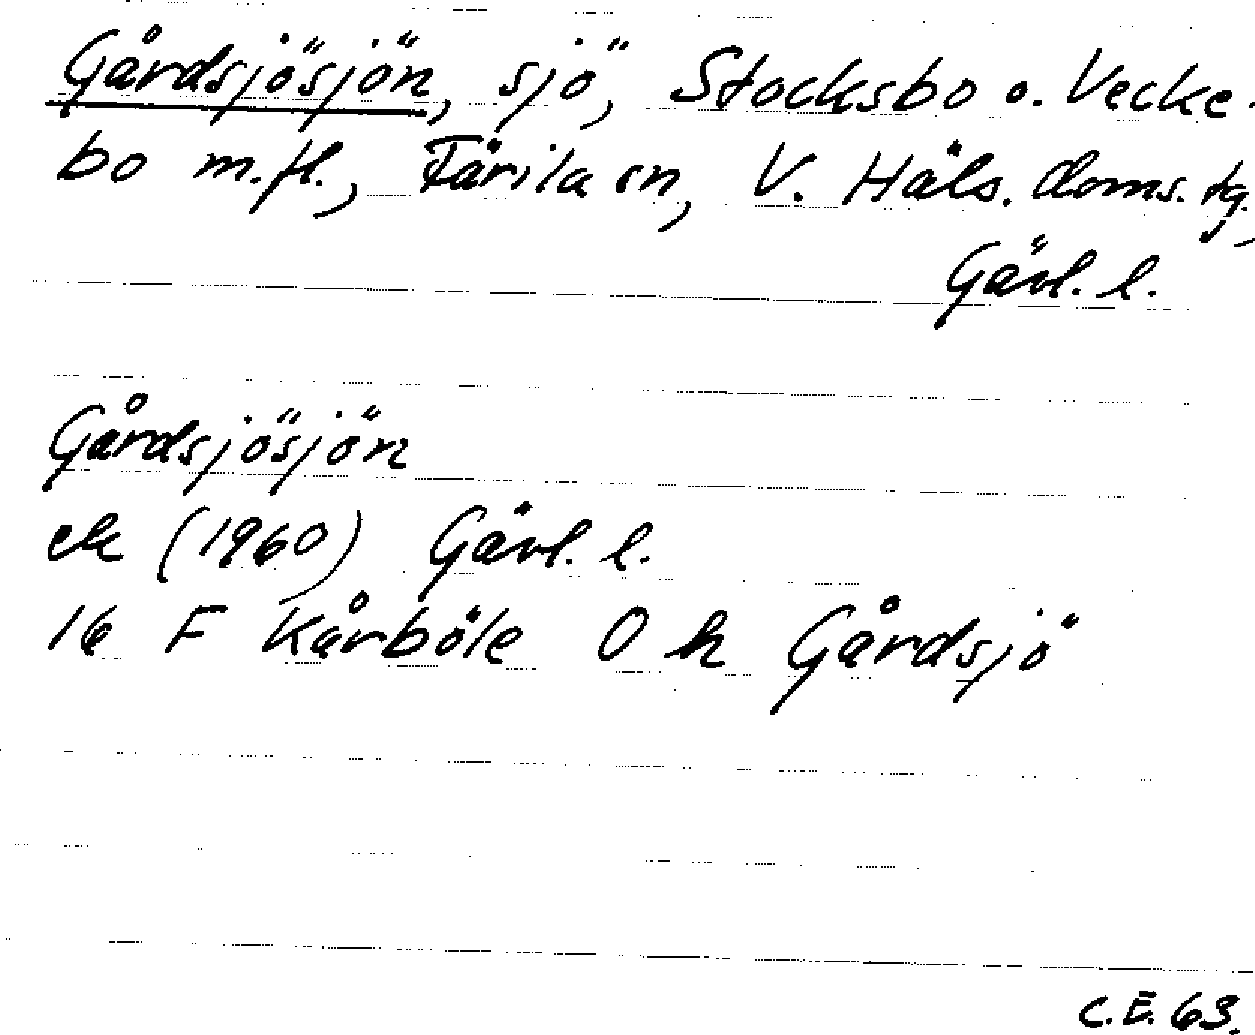 Gårdsjösjön, sjö, Stocksbo o. Vecke-
bo m.fl., Färila sn, V. Häls. doms. tg.,
Gävl. l.
Gårdsjösjön
ek (1960) Gävl. l.
16 F Kårböle O h Gårdsjö
C.E. 63.